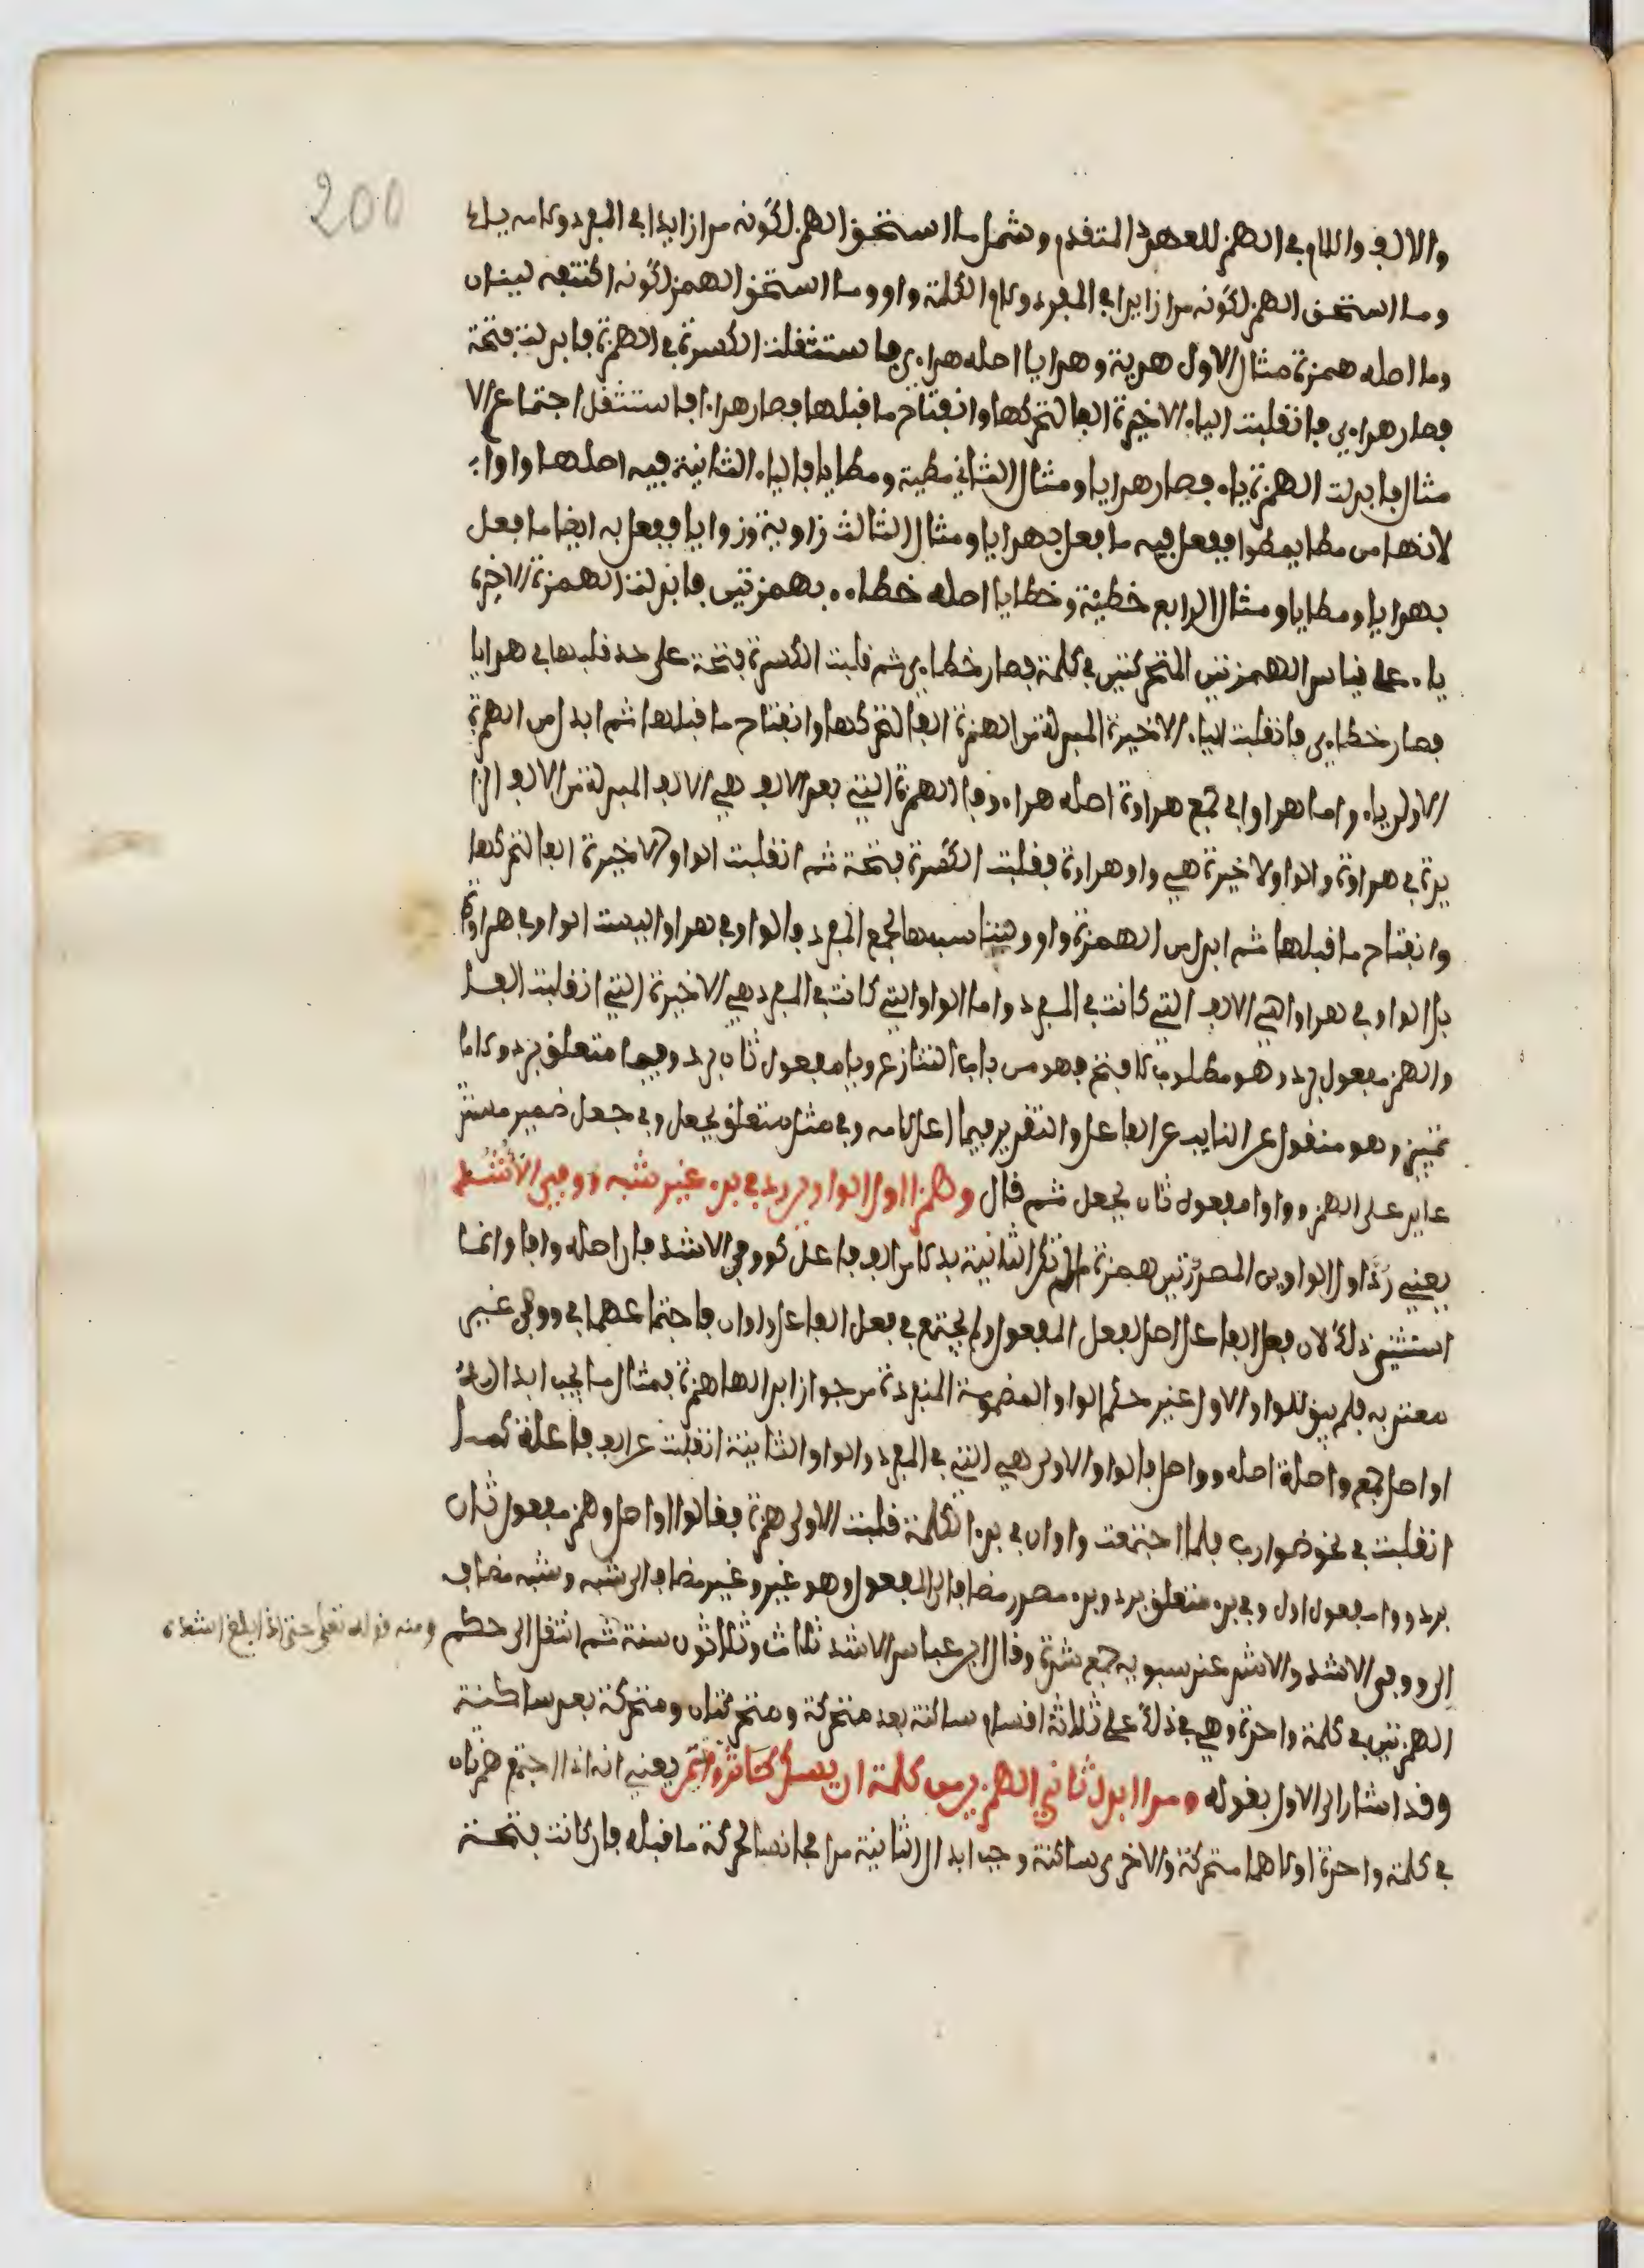 200
والالف واللام في الهمز للعهد المتقدم وشمل ما استحق الهمز لكونه مدا زايدا في المفرد ولامه ياء
وما استحق الهمز لكونه مدا زايدا في المفرد ولام الكلمة واو وما استحق الهمز لكونه اكتنفه لينان
وما اصله همزة مثال الاول هدية وهدايا اصله هداءي فاستثقلت الكسرة في الهمزة فابدلت فتحة
فصار هداءي فانقلبت الياء الاخيرة الفا لتحركها وانفتاح ما قبلها فصار هداءا فاستثقل اجتماع الا
مثال فابدلت الهمزة ياء فصار هدايا ومثال الثاني مطية ومطايا فالياء الثانية فيه اصلها واوا
لانها من مطا يمطوا ففعل فيه ما فعل بهدايا ومثال الثالث زاوية وزوايا ففعل به ايضا ما فعل
بهدايا ومطايا ومثال الرابع خطيئة وخطايا اصله خطاءء بهمزتين فابدلت الهمزة الاخيرة
ياء على قياس الهمزتين المتحركتين في كلمة فصار خطاءي ثم قلبت الكسرة فتحة على حد قلبها في هدايا
فصار خطاءي فانقلبت الياء الاخيرة المبدلة من الهمزة الفا لتحركها وانفتاح ما قبلها ثم ابدل من الهمزة
الاولى ياء واما هراوا في جمع هراوة اصله هراءو فالهمزة التي بعد الالف هي الالف المبدلة من الالف الزا
يدة في هراوة والواو الاخيرة هي واو هراوة فقلبت الكسرة فتحة ثم انقلبت الواو الاخيرة الفا لتحركها
وانفتاح ما قبلها ثم ابدل من الهمزة واو وليتناسب بها الجمع المفرد فالواو في هراوا ليست الواو في هراوة
بل الواو في هراوا هي الالف التي كانت في المفرد واما الواو التي كانت في المفرد هي الاخيرة التي انقلبت الفا
والهمز مفعول برد وهو مطلوب لافتح فهو من باب التنازع ويا مفعول ثان برد وفيما متعلق برد ولاما
تمييز وهو منقول عن النايب عن الفاعل والتقدير فيما اعل لامه وفي مثل متعلق بجعل وفي جعل ضمير مستتر
عايد على الهمز وواوا مفعول ثان بجعل ثم قال وهمزا اول الواوين رد في بدء غير شبه ووفي الأشد
يعني رد اول الواوين المصدرتين همزة ما لم تكن الثانية بدلا من الف فاعل نحو ووفي الاشد فان اصله وافا وانما
استثنى ذلك لان فعل الفاعل اصل لفعل المفعول ولم يجتمع في فعل الفاعل واوان فاجتماعهما في ووفي غير
معتد به فلم يبق للواو الاول غير حكم الواو المضمومة المنفردة من جواز ابدالها همزة فمثال ما يجب ابداله
اواصل جمع واصلة اصله وواصل فالواو الاولى هي التي في المفرد والواو الثانية انقلبت عن الف فاعلة كما
انقلبت في نحو ضوارب فلما اجتمعت واوان في بدء الكلمة قلبت الاولى همزة فقالوا اواصل وهمز مفعول ثان
برد وواو مفعول اول وفي بدء متعلق برد وبدء مصدر مضاف الى المفعول وهو غير وغير مضاف الى شبه وشبه مضاف
الى ووفي الاشد والاشد عند سيبويه جمع شدة وقال ابن عباس الاشد ثلاث وثلاثون سنة ثم انتقل الى حكم
ومنه قوله تعلى حتى اذا بلغ اشده
الهمزتين في كلمة واحدة وهي في ذلك على ثلاثة اقسام ساكنة بعد متحركة ومتحركتان ومتحركة بعد ساكنة
وقد اشار الى الاول بقوله ومدا ابدل ثاني الهمزين من كلمة ان يسكن كآثر وائتمن يعني انه اذا اجتمع همزتان
في كلمة واحدة اولاهما متحركة والاخرى ساكنة وجب ابدال الثانية مدا مجانسا لحركة ما قبله فان كانت فتحة